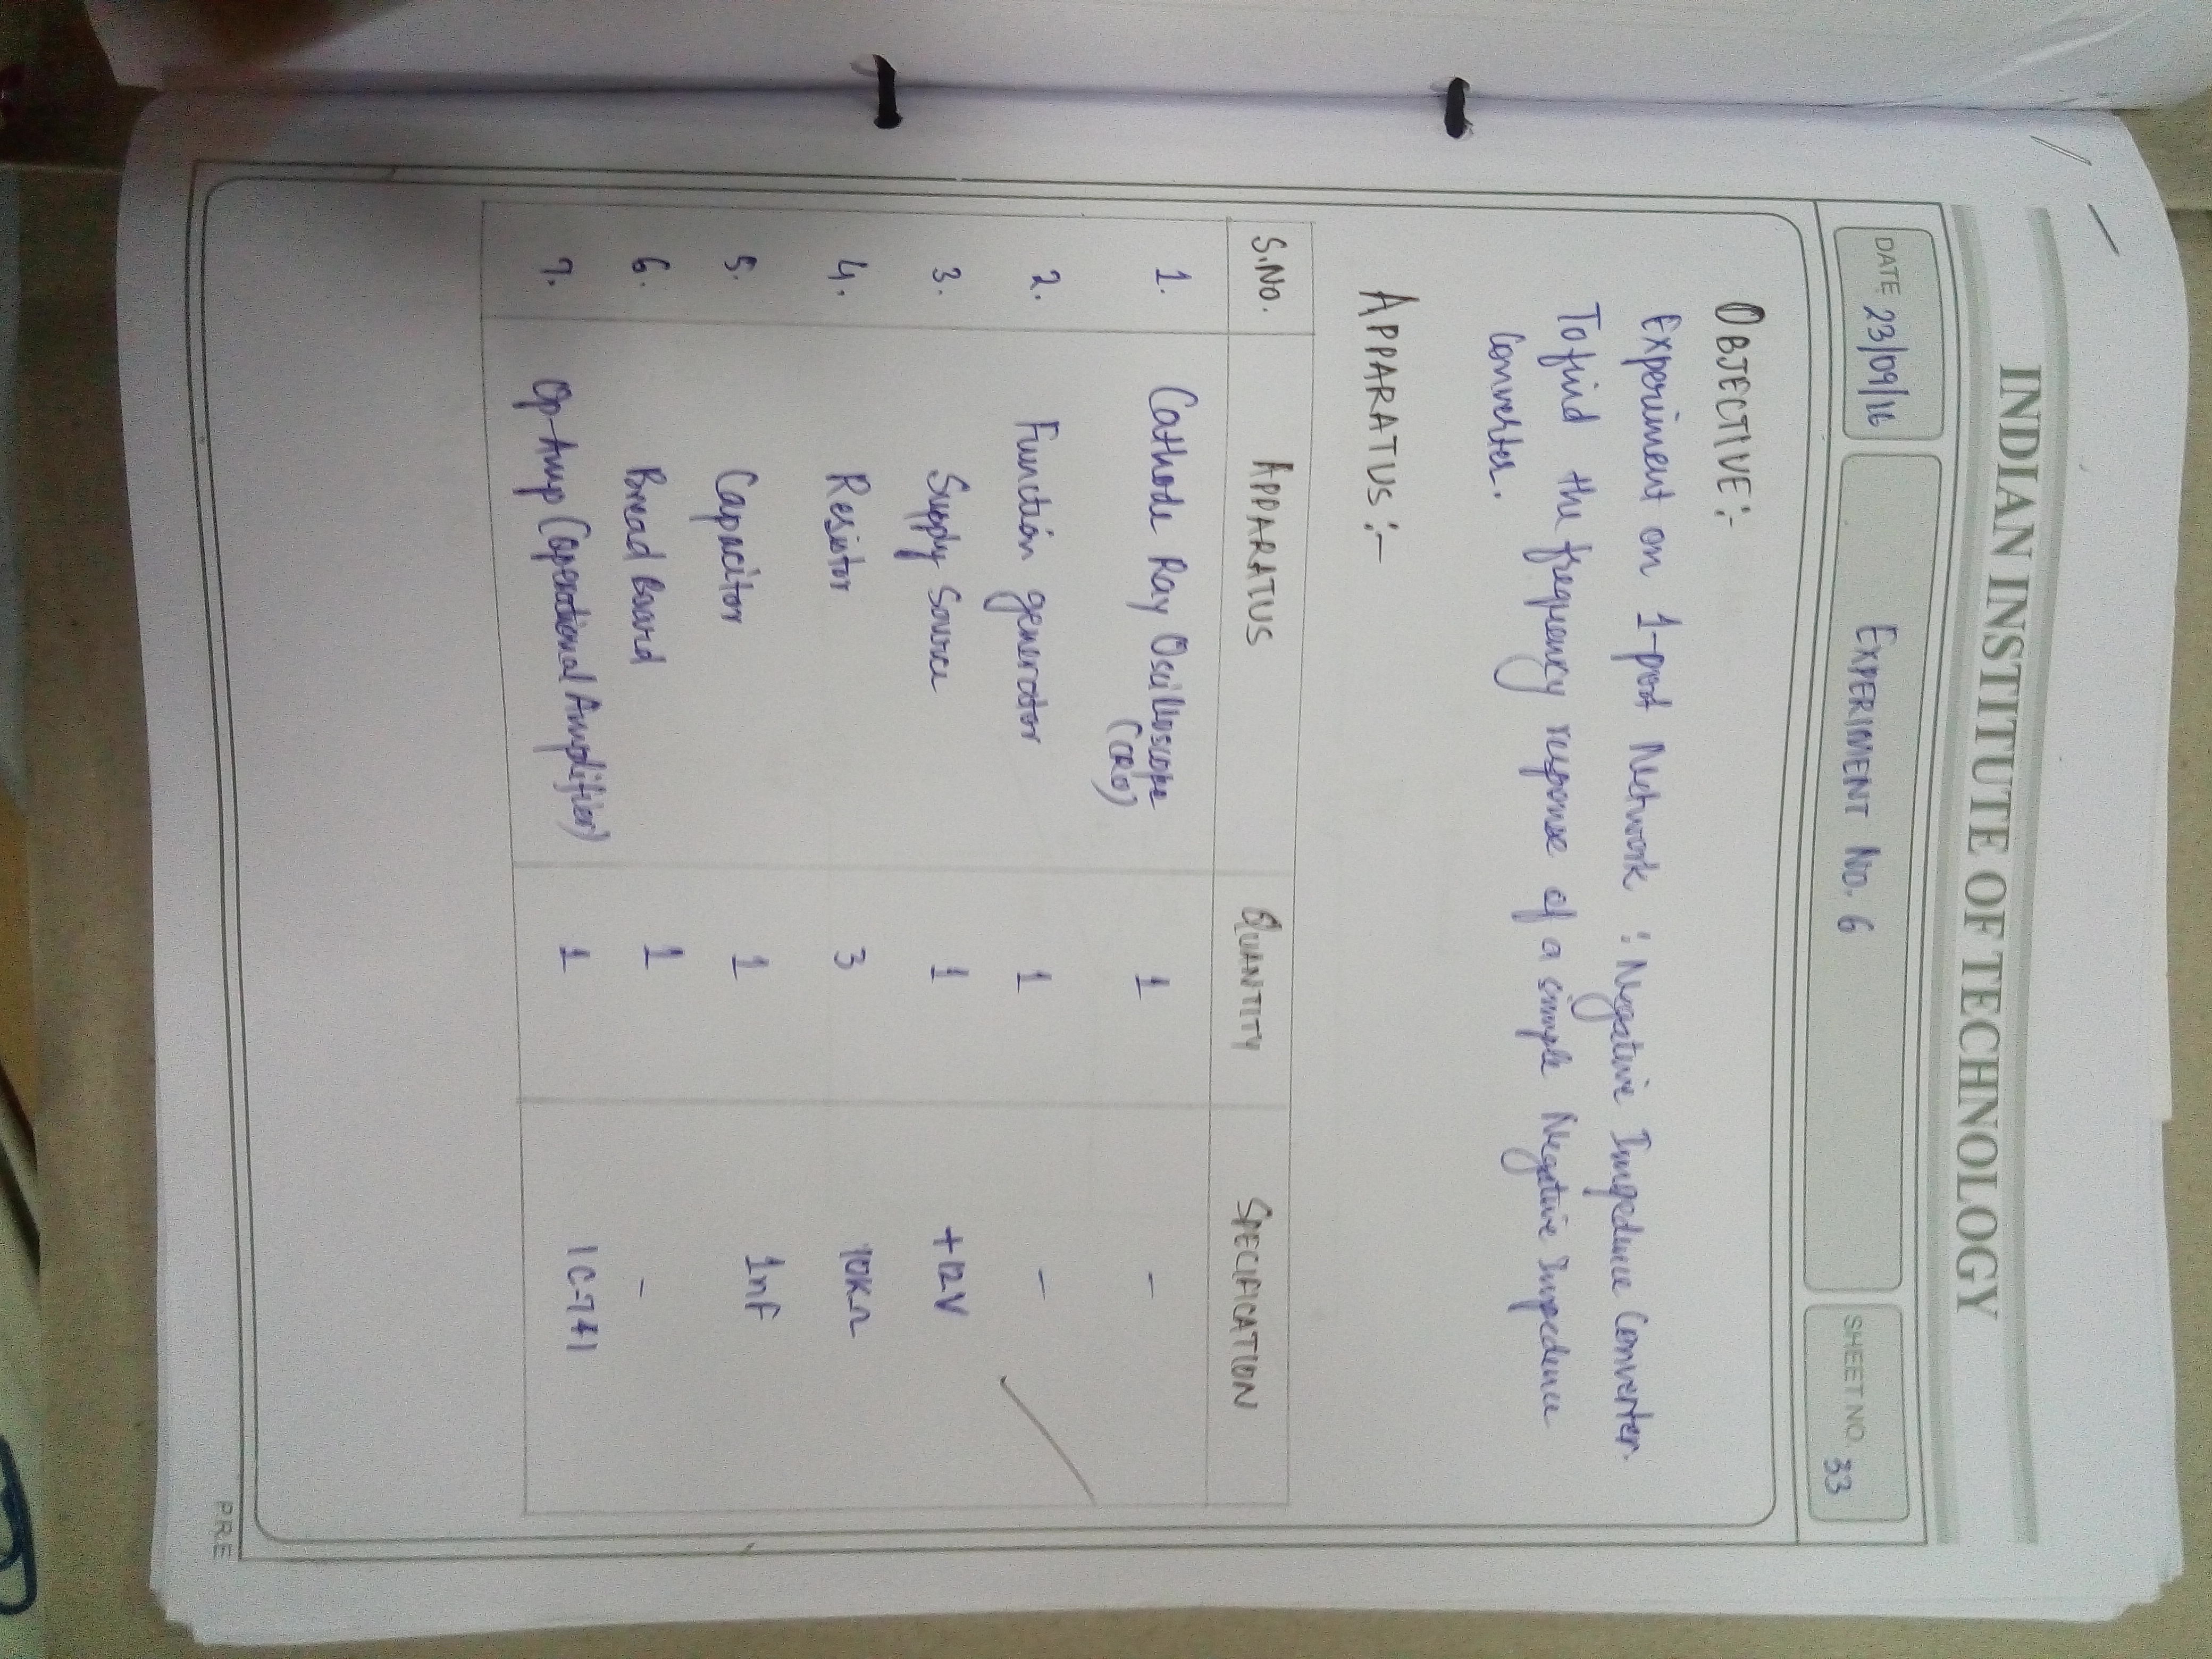 INDIAN INSTITUTE OF TECHNOLOGY
DATE 23/09/16
EXPERIMENT NO. 6
SHEET NO. 33
OBJECTIVE:-
Experiment on 1-port Network : Negative Impedence Converter.
To find the frequency response of a simple Negative Impedence
Converter.
APPARATUS:-
S.NO. APPARATUS QUANTITY SPECIFICATION
1. Cathode Ray Oscilloscope 1 -
(CRO)
2. Function generator 1 -
3. Supply Source 1 +12V
4. Resistor 3 10KΩ
5. Capacitor 1 1nF
6. Bread Board 1 -
7. Op-Amp (Operational Amplifier) 1 IC-741
P.R.E.